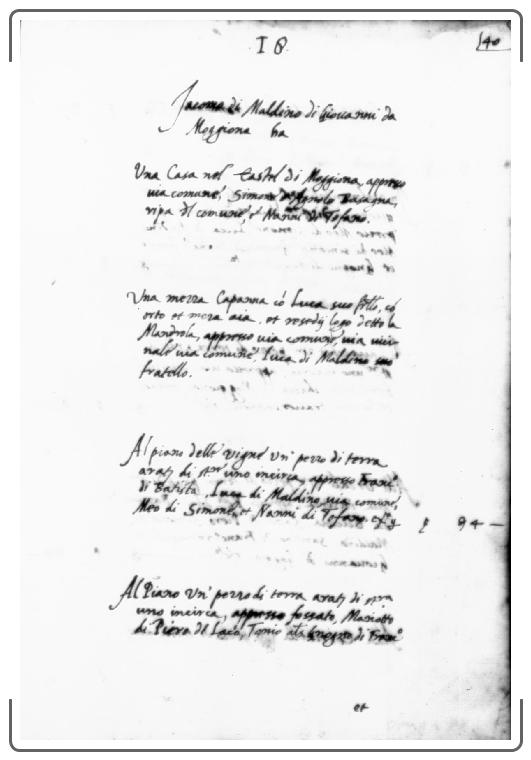 18
40
Jacomo di Maldino di Giovanni da
Moggiona ha
Una Casa nel Castel di Moggiona, appresso
via comune, Simone d'Agnolo Basagna,
ripa del comune, et Nanni di Tofano.
Una mezza Capanna cō Luca suo frllo, cō
orto et meza aia, et resedij logo detto la
Mandrola, appresso via comune, via vici-
nale via comune, Luca di Maldino suo
fratello.
Al piano delle vigne un' pezzo di terra
arat; di str uno incirca, appresso Franc°
di Batista, Luca di Maldino via comune,
Meo di Simone, et Nanni di Tofano. 94 —
Al Piano un' pezzo di terra arat; di
uno incirca, appresso fossato, Mariotto
di Piero de Laco, Tonio di Franc°
et